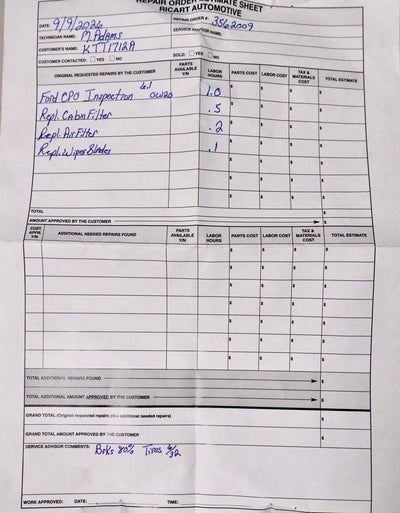 REPAIR ORDER ESTIMATE SHEET
RICART AUTOMOTIVE
DATE: 9/9/2026 REPAIR ORDER #: 3562009
TECHNICIAN NAME: M. Adams SERVICE ADVISOR NAME:
CUSTOMER'S NAME: KTT1712A SOLD: YES NO
CUSTOMER CONTACTED: YES NO
ORIGINAL REQUESTED REPAIRS BY THE CUSTOMER PARTS AVAILABLE Y/N LABOR HOURS PARTS COST LABOR COST TAX & MATERIALS COST TOTAL ESTIMATE
Ford CPO Inspection 6.1 0W20 1.0 $ $ $ $
Repl. Cabin Filter .5 $ $ $ $
Repl. Air Filter .2 $ $ $ $
Repl. Wiper Blades .1 $ $ $ $
$ $ $ $
$ $ $ $
TOTAL $
AMOUNT APPROVED BY THE CUSTOMER $
CUST. APPR. Y/N ADDITIONAL NEEDED REPAIRS FOUND PARTS AVAILABLE Y/N LABOR HOURS PARTS COST LABOR COST TAX & MATERIALS COST TOTAL ESTIMATE
$ $ $ $
$ $ $ $
$ $ $ $
$ $ $ $
$ $ $ $
$ $ $ $
$ $ $ $
TOTAL ADDITIONAL REPAIRS FOUND $
TOTAL ADDITIONAL AMOUNT APPROVED BY THE CUSTOMER $
GRAND TOTAL (Original requested repairs plus additional needed repairs) $
GRAND TOTAL AMOUNT APPROVED BY THE CUSTOMER $
SERVICE ADVISOR COMMENTS: Brks 80% Tires 6/32
WORK APPROVED: DATE: TIME: